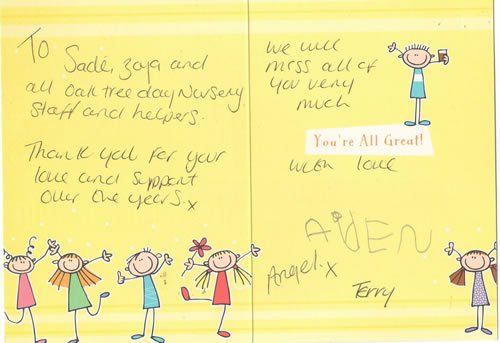 To
Sade, Zoya and
all Oak tree day Nursery
staff and helpers.
Thank you for your
love and support
over the years. x
We will
miss all of
you very
much
You're All Great!
with love
AiDEN
Angel. x
Terry